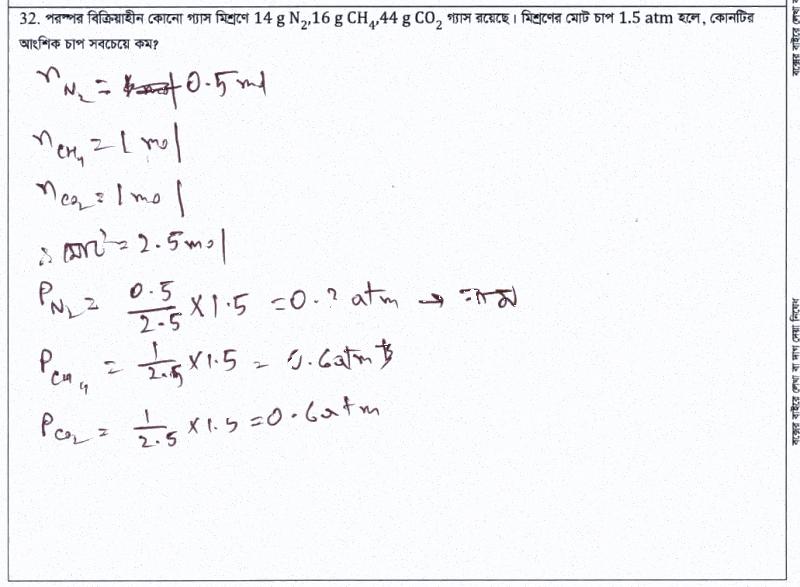 32. পরস্পর বিক্রিয়াহীন কোনো গ্যাস মিশ্রণে 14 g N₂,16 g CH₄,44 g CO₂ গ্যাস রয়েছে। মিশ্রণের মোট চাপ 1.5 atm হলে, কোনটির
আংশিক চাপ সবচেয়ে কম?
n N₂ = 0.5 mol
n CH₄ = 1 mol
n CO₂ = 1 mol
∴ মোট = 2.5 mol
P N₂ = 0.5/2.5 × 1.5 = 0.3 atm →
P CH₄ = 1/2.5 × 1.5 = 0.6 atm
P CO₂ = 1/2.5 × 1.5 = 0.6 atm
বক্সের বাইরে লেখা বা দাগ দেয়া নিষেধ